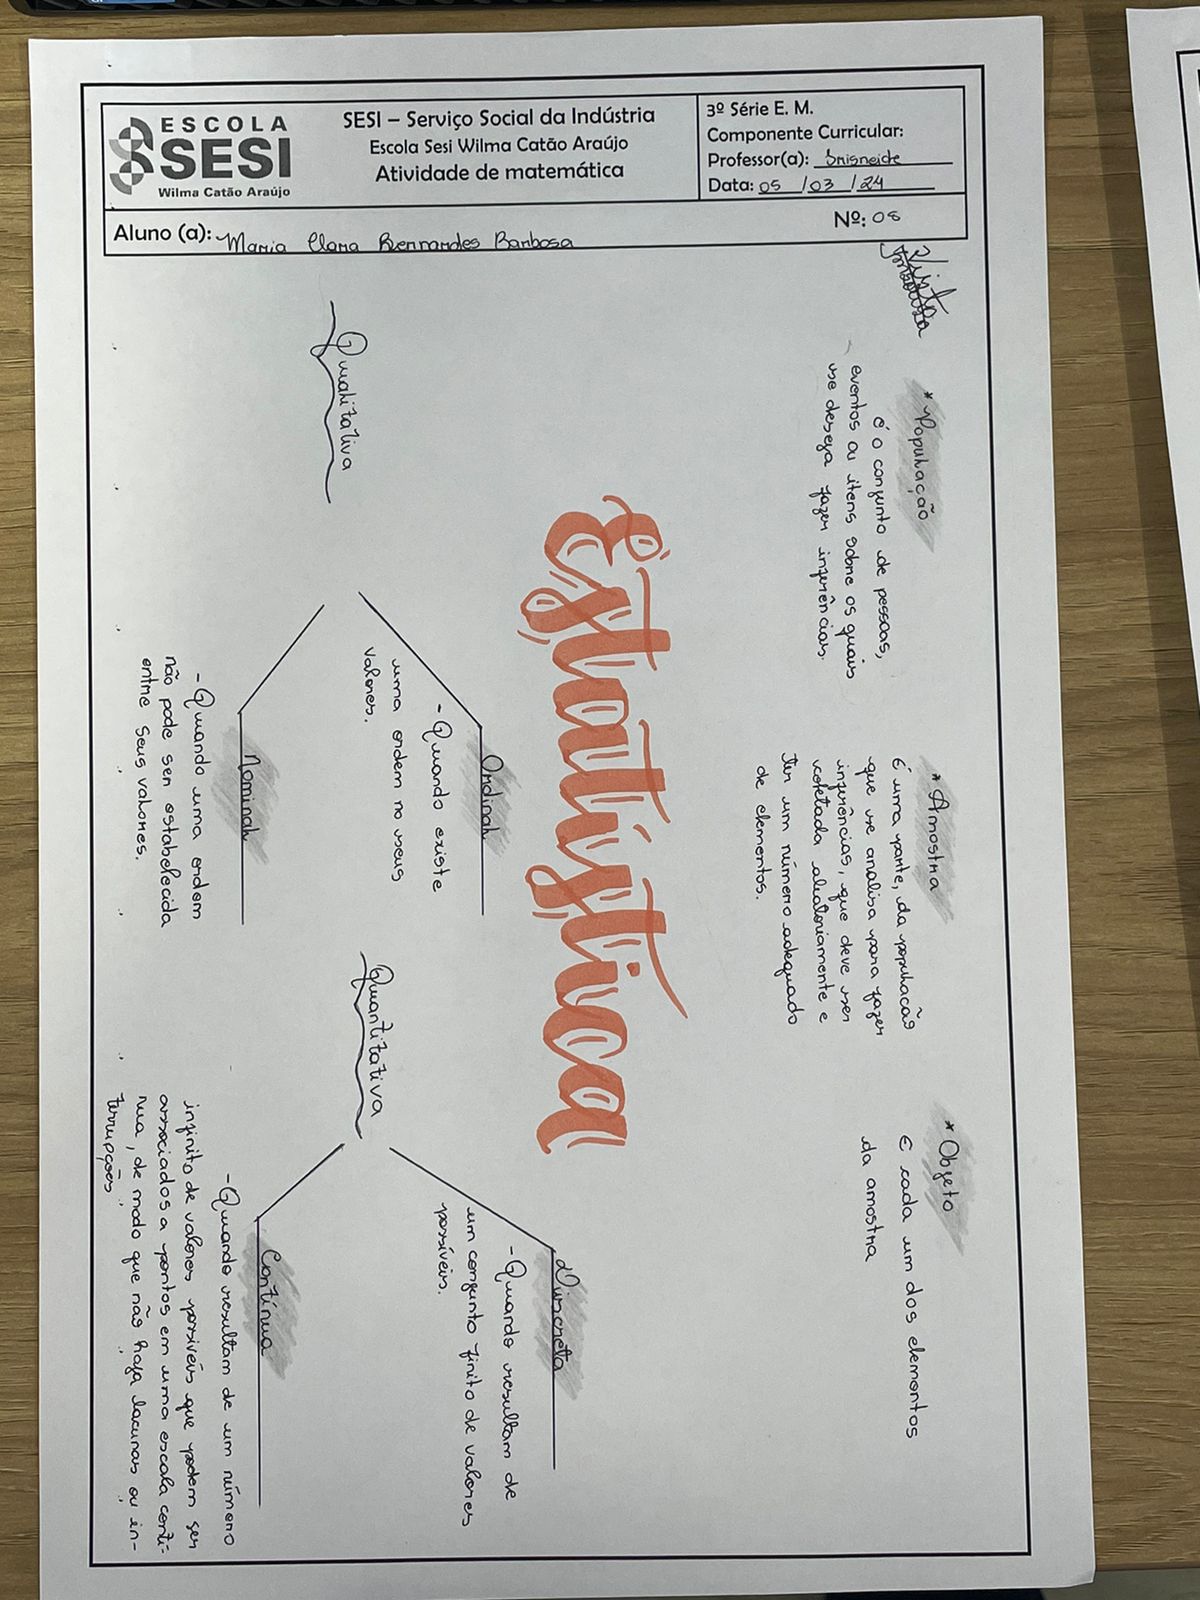 ESCOLA
SESI
Wilma Catão Araújo
SESI – Serviço Social da Indústria
Escola Sesi Wilma Catão Araújo
Atividade de matemática
3º Série E. M.
Componente Curricular:
Professor(a): Irisneide
Data: 05 /03 /24
Aluno (a): Maria Clara Bernardes Barbosa
Nº: 08
Visto
* População
é o conjunto de pessoas,
eventos ou itens sobre os quais
se deseja fazer inferências.
* Amostra
É uma parte, da população
que se analisa para fazer
inferências, que deve ser
coletada aleatoriamente e
ter um número adequado
de elementos.
* Objeto
É cada um dos elementos
da amostra
Estatística
Qualitativa
Ordinal
- Quando existe
uma ordem no seus
valores.
Nominal
- Quando uma ordem
não pode ser estabelecida
entre seus valores.
Quantitativa
Discreta
- Quando resultam de
um conjunto finito de valores
possíveis.
Contínua
- Quando resultam de um número
infinito de valores possíveis que podem ser
associados a pontos em uma escala contí-
nua, de modo que não haja lacunas ou in-
terrupções.